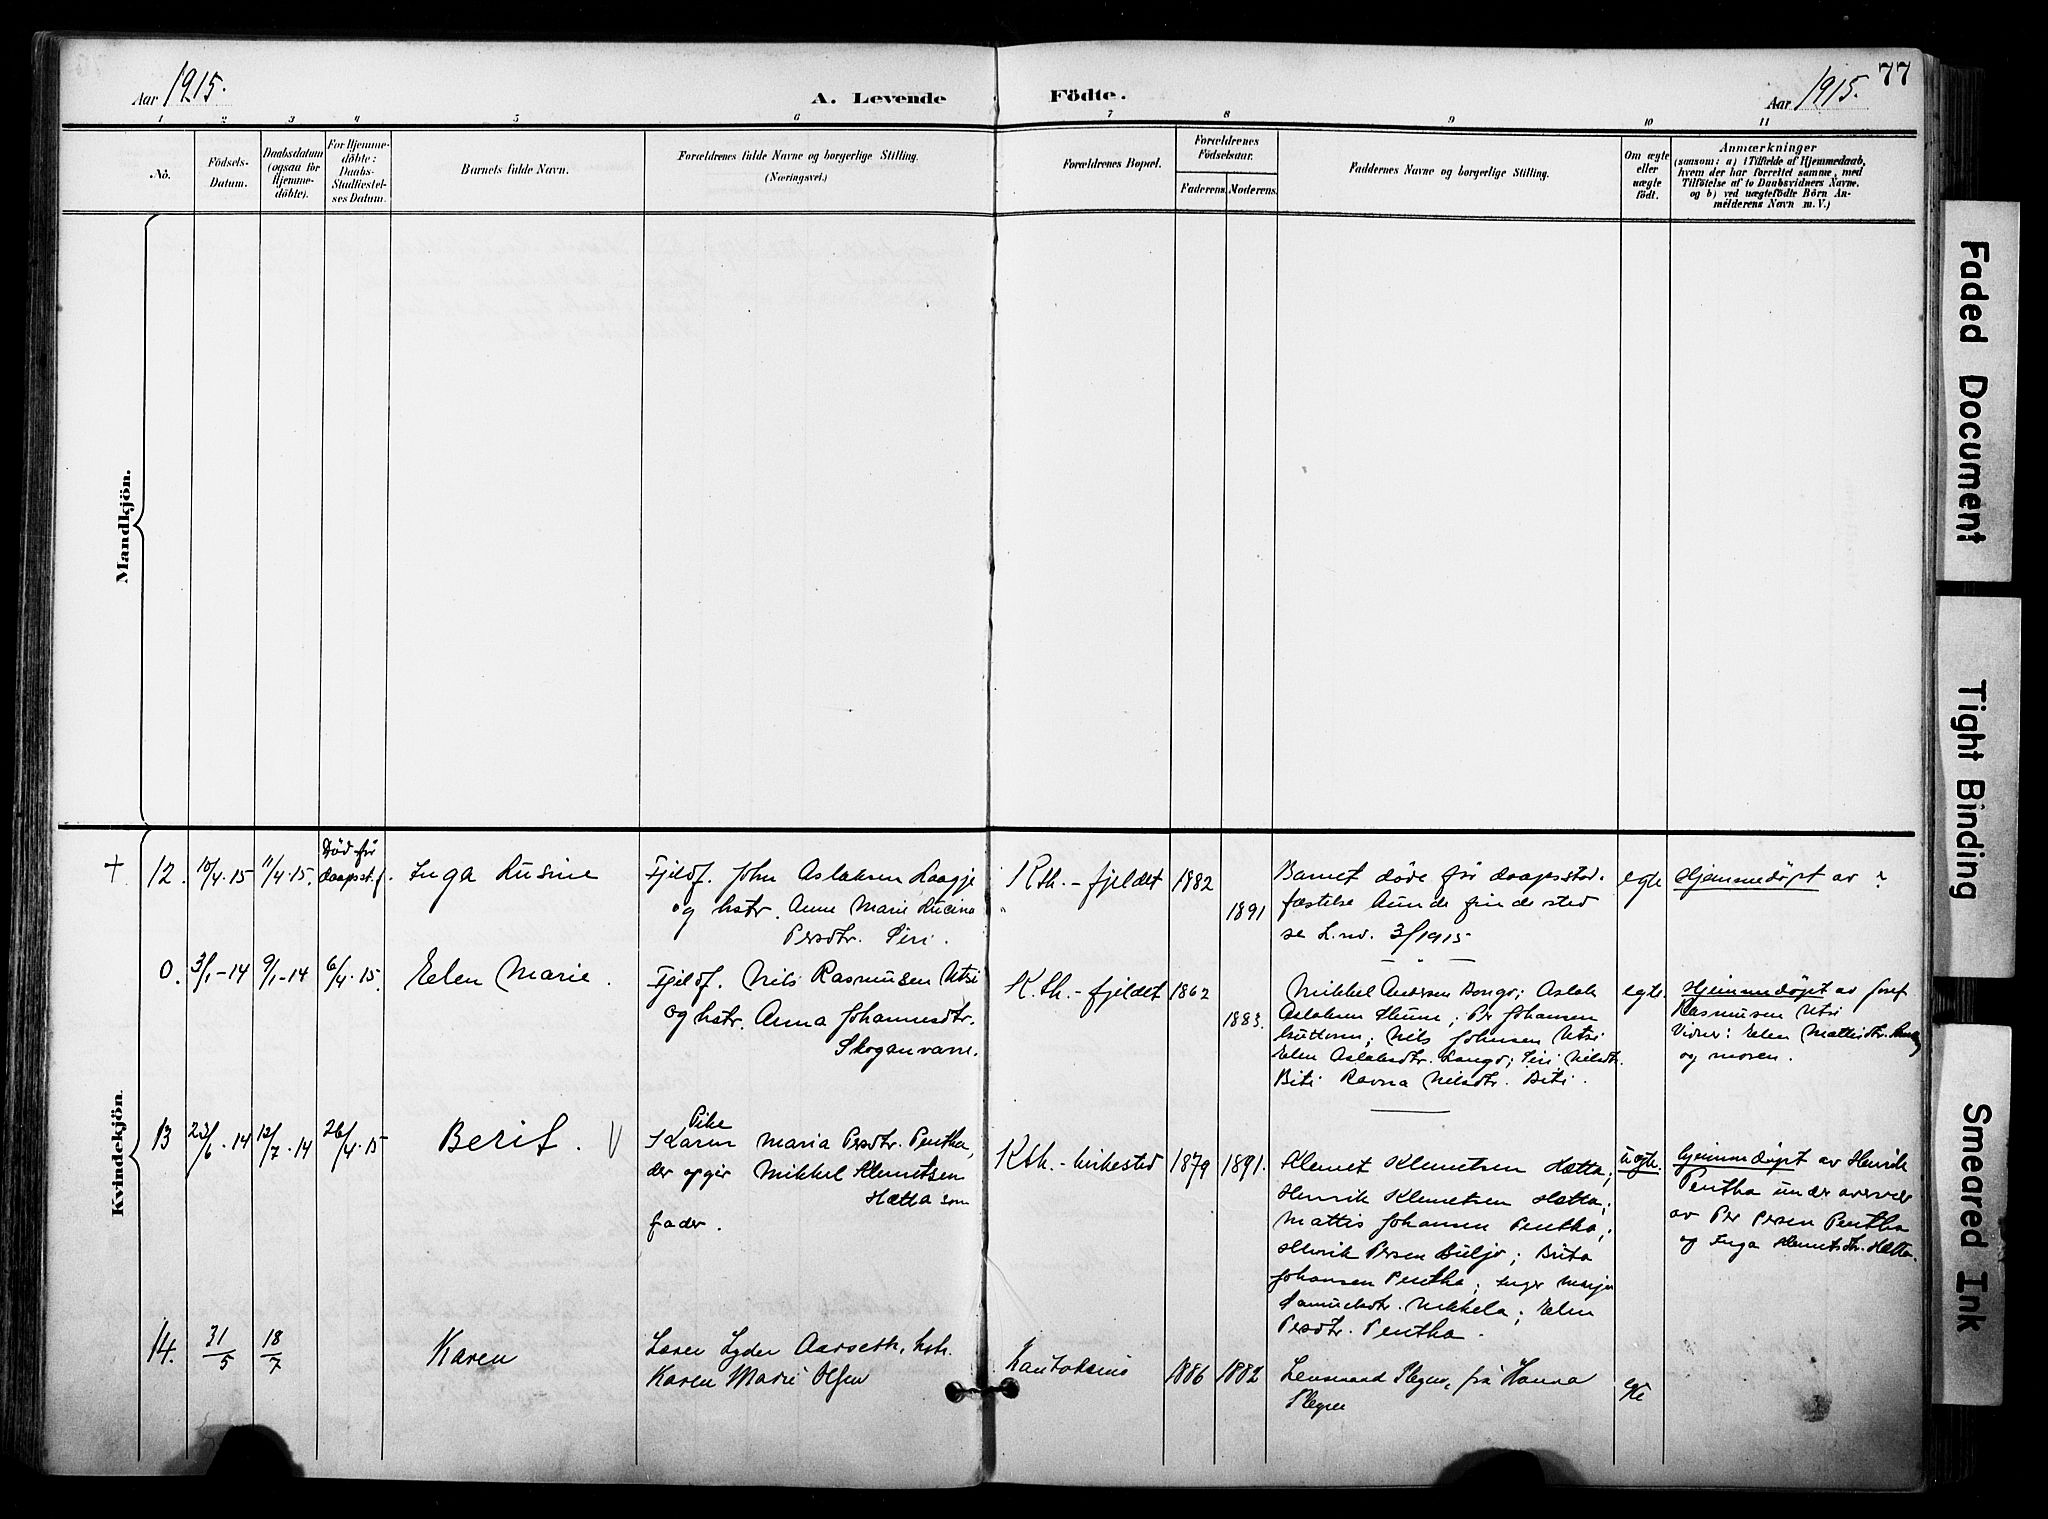 77
Aar 1915.
A. Levende Födte.
Aar 1915.
1 2 3 4 5 6 7 8 9 10 11
No.
Födsels-Datum.
Daabsdatum (ogsaa for Hjemme-döbte).
For Hjemme-döbte: Daabs-Stadfæstel-ses Datum.
Barnets fulde Navn.
Forældrenes fulde Navne og borgerlige Stilling.
(Næringsvei.)
Forældrenes Bopæl.
Forældrenes Födselsaar.
Faderens. Moderens.
Faddernes Navne og borgerlige Stilling.
Om ægte eller uægte födt.
Anmærkninger
(saasom: a) i Tilfælde af Hjemmedaab,
hvem der har forrettet samme, med
Tilföielse af to Daabsvidners Navne.
og b) ved uægtefödte Börn An-
melderens Navn m. V.)
Mandkjön.
Kvindekjön.
+ 12. 10/4.15 11/4.15. Död før daapsst.f. Inga Lusine
Fjeldf. John Aslaksen Laagje
og hstr. Anne Marie Lucina
Persdtr. Siri.
Kth. - fjeldet 1882 1891
Barnet døde før daapsstad-
fæstelse kunde finde sted
se L.nr. 3/1915
egte Hjemmedøpt av ?
0. 3/1-14 9/1-14 6/4.15. Elen Marie.
Fjeldf. Nils Rasmussen Utsi
og hstr. Anna Johannesdtr.
Skoganvarre.
K.th. - fjeldet 1862 1883.
Mikkel Andersen Bongo; Aslak
Aslaksen Skum; Per Johansen
; Nils Johnsen Utsi
Elen Aslaksdtr. ; Siri Nilsdtr.
Biti Ravna Nilsdtr. Biti.
egte. Hjemmedøpt av Josef
Rasmusen Utsi
Vidner: Elen Mattisdtr.
og moren.
13 23/6.14 12/7.14 26/4.15 Berit. V
Pike
Karen Maria Persdtr. Pentha,
der opgir Mikkel Klemetsen
Hætta som
fader.
Kth. - kirkested 1879 1891.
Klemet Klemetsen Hætta;
Henrik Klemetsen Hætta;
Mattis Johansen Pentha;
Henrik Persen Buljo; Brita
Johansen Pentha; Inger Marja
Samuelsdtr. Nikkela; Elen
Persdtr. Pentha.
uegte. hjemmedøpt av Henrik
Pentha under overvær
av Per Persen Pentha
og Inga Klemetsdtr. Hætta.
14. 31/5 18/7 Karen
Lyder Aarseth, hstr.
Karen Marie Olsen
Kautokeino 1886 1882
Lensmand , frk Hanna
egte
Faded Document
Tight Binding
Smeared Ink